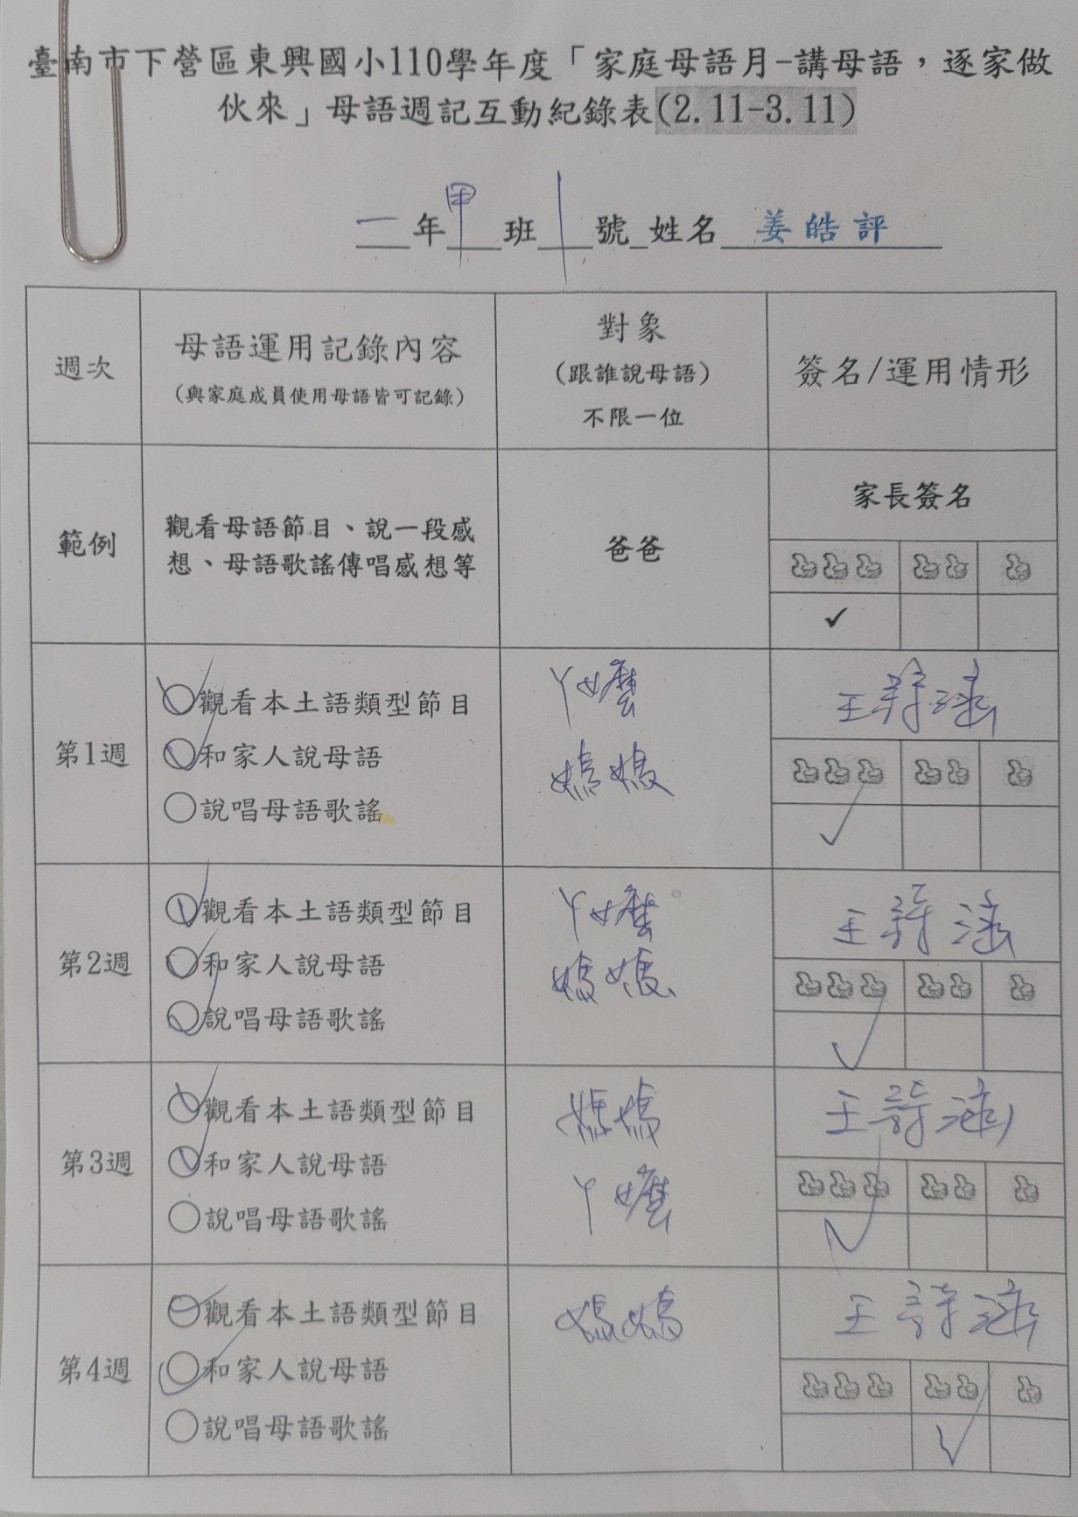 臺南市下營區東興國小110學年度「家庭母語月-講母語，逐家做
伙來」母語週記互動紀錄表(2.11-3.11)
一年甲班1號 姓名 姜皓評
週次
母語運用記錄內容
(與家庭成員使用母語皆可記錄)
對象
(跟誰說母語)
不限一位
簽名/運用情形
範例
觀看母語節目、說一段感
想、母語歌謠傳唱感想等
爸爸
家長簽名
✓
第1週
觀看本土語類型節目
和家人說母語
說唱母語歌謠
ㄚ嬤
媽媽
王詩涵
第2週
觀看本土語類型節目
和家人說母語
說唱母語歌謠
ㄚ嬤
媽媽
王詩涵
第3週
觀看本土語類型節目
和家人說母語
說唱母語歌謠
媽媽
ㄚ嬤
王詩涵
第4週
觀看本土語類型節目
和家人說母語
說唱母語歌謠
媽媽
王詩涵